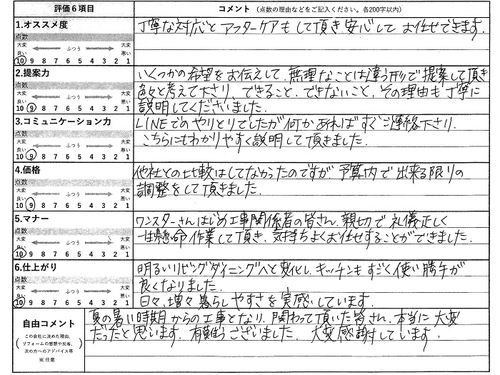 評価6項目 コメント（点数の理由などをご記入ください。各200字以内）
1.オススメ度
点数
大変良い ふつう 大変悪い
10 9 8 7 6 5 4 3 2 1
丁寧な対応とアフターケアもして頂き安心してお任せできます。
2.提案力
点数
大変良い ふつう 大変悪い
10 9 8 7 6 5 4 3 2 1
いくつかの希望をお伝えして、無理なことは違う形で提案して頂き
色々と考えて下さり、できること、できないこと、その理由も丁寧に
説明してくださいました。
3.コミュニケーション力
点数
大変良い ふつう 大変悪い
10 9 8 7 6 5 4 3 2 1
LINEでのやりとりでしたが何かあればすぐご連絡下さり、
こちらにもわかりやすく説明して頂きました。
4.価格
点数
大変良い ふつう 大変悪い
10 9 8 7 6 5 4 3 2 1
他社との比較はしてなかったのですが予算内で出来る限りの
調整をして頂きました。
5.マナー
点数
大変良い ふつう 大変悪い
10 9 8 7 6 5 4 3 2 1
ワンスターさんはじめ工事関係者の皆さん、親切で礼儀正しく
一生懸命作業して頂き、気持ちよくお任せすることができました。
6.仕上がり
点数
大変良い ふつう 大変悪い
10 9 8 7 6 5 4 3 2 1
明るいリビングダイニングへと変化し、キッチンもすごく使い勝手が
良くなりました。
日々、増々暮らしやすさを実感しています。
自由コメント
（この会社に決めた理由、
リフォームの感想や反省、
次の方へのアドバイス等
※任意
夏の暑い時期からの工事となり、関わって頂いた皆さん、本当に大変
だったと思います。有難うございました。大変感謝しています。